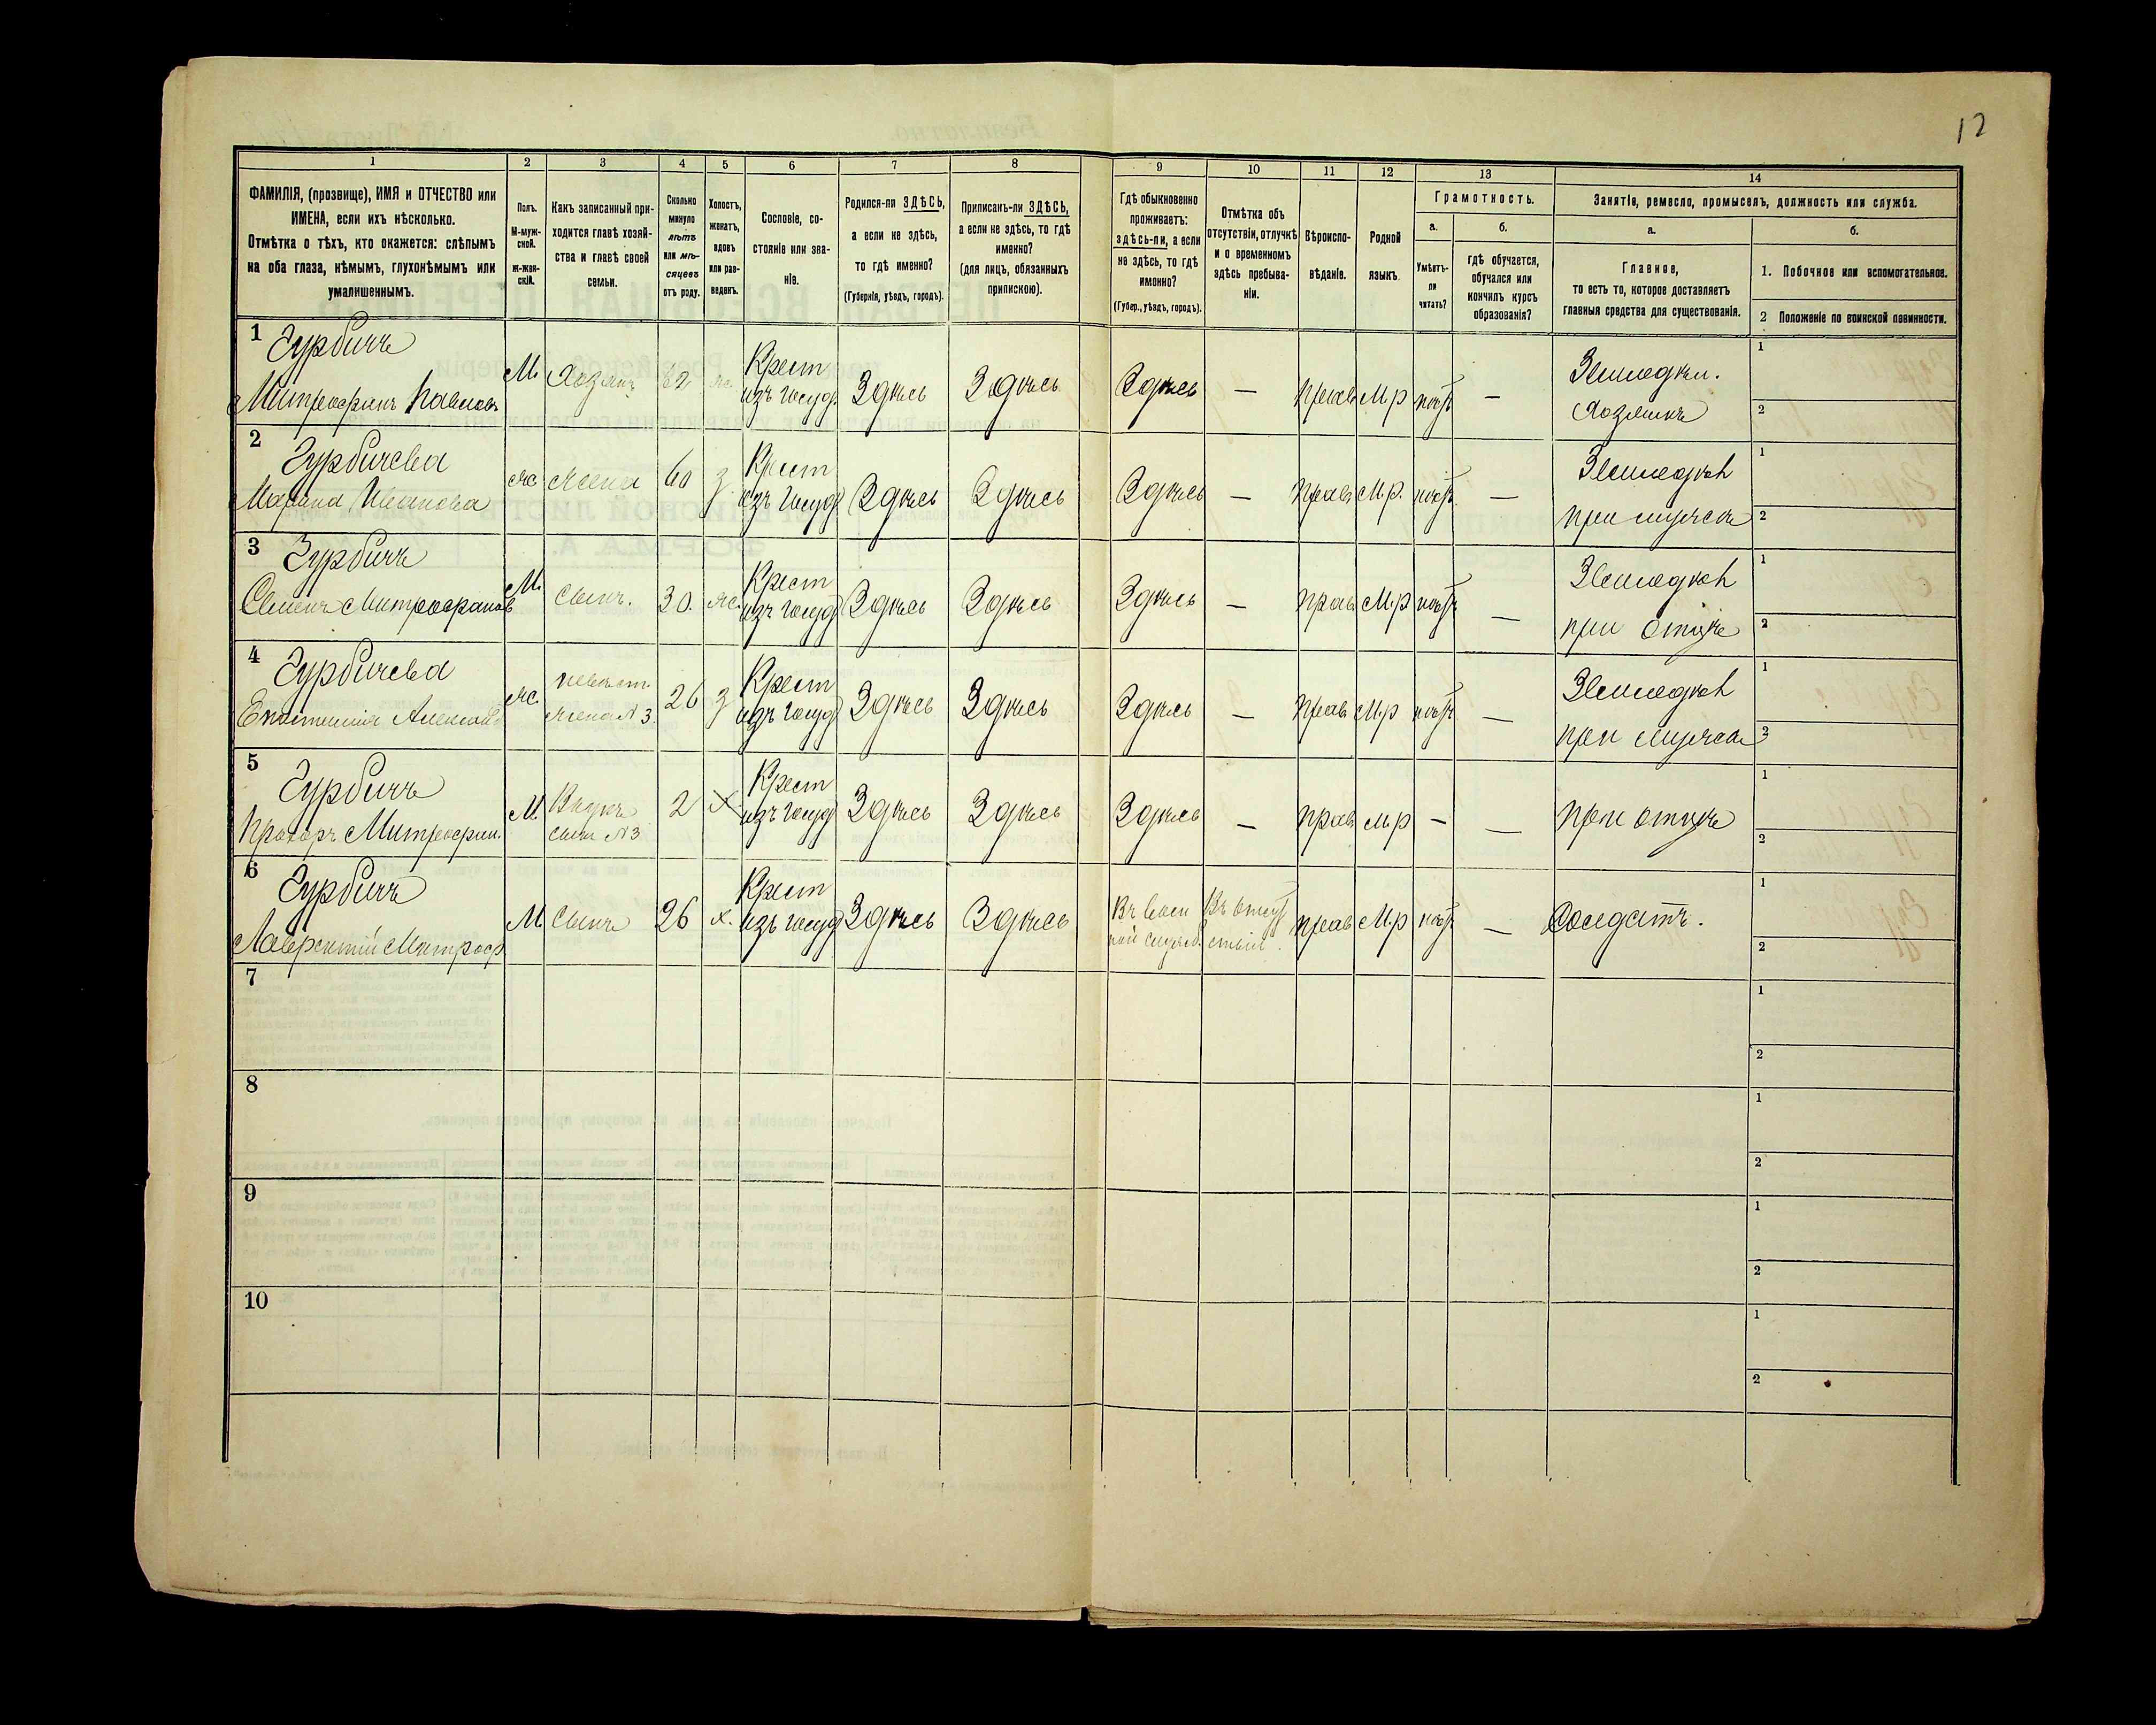 12
1 2 3 4 5 6 7 8 9 10 11 12 13 14
ФАМИЛІЯ, (прозвище), ИМЯ и ОТЧЕСТВО или
ИМЕНА, если ихъ нѣсколько.
Отмѣтка о тѣхъ, кто окажется: слѣпымъ
на оба глаза, нѣмымъ, глухонѣмымъ или
умалишеннымъ.
Полъ.
М-муж-
ской.
ж-жен-
скій.
Какъ записанный при-
ходится главѣ хозяй-
ства и главѣ своей
семьи.
Сколько
минуло
лѣтъ
или мѣ-
сяцевъ
отъ роду.
Холостъ,
женатъ,
вдовъ
или раз-
веденъ.
Сословіе, со-
стояніе или зва-
ніе.
Родился-ли ЗДѢСЬ,
а если не здѣсь,
то гдѣ именно?
(Губернія, уѣздъ, городъ).
Приписанъ-ли ЗДѢСЬ,
а если не здѣсь, то гдѣ
именно?
(для лицъ, обязанныхъ
припискою).
Гдѣ обыкновенно
проживаетъ:
здѣсь-ли, а если
не здѣсь, то гдѣ
именно?
(Губер., уѣздъ, городъ).
Отмѣтка объ
отсутствіи, отлучкѣ
и о временномъ
здѣсь пребыва-
ніи.
Вѣроиспо-
вѣданіе.
Родной
языкъ.
Грамотность.
а.
Умѣетъ-
ли
читать?
б.
гдѣ обучается,
обучался или
кончилъ курсъ
образованія?
Занятіе, ремесло, промыселъ, должность или служба.
а.
Главное,
то есть то, которое доставляетъ
главныя средства для существованія.
б.
1. Побочное или вспомогательное.
2 Положеніе по воинской повинности.
1 Гурбичъ
Митрофанъ Павловъ
М. Хозяинъ 62 ж. Крест
изъ госуд Здѣсь Здѣсь Здѣсь — Прав М.р нѣтъ — Земледѣл.
Хозяинъ
1
2
2 Гурбичева
Марина Иванова
ж жена 60 з Крест
изъ госуд Здѣсь Здѣсь Здѣсь — Прав М.р. нѣтъ — Земледѣл
при мужѣ
1
2
3 Гурбичъ
Семенъ Митрофанов
М. сынъ. 30. ж. Крест
изъ госуд Здѣсь Здѣсь Здѣсь — Прав М.р нѣтъ — Земледѣл
при отцѣ
1
2
4 Гурбичева
ж. невѣст
жена N 3 26 з Крест
изъ госуд Здѣсь Здѣсь Здѣсь — Прав М.р нѣтъ — Земледѣл
при мужѣ
1
2
5 Гурбичъ
Прохоръ Митрофан.
М. Внукъ
сынъ N 3 2 х Крест
изъ госуд Здѣсь Здѣсь Здѣсь — прав м.р — — При отцѣ
1
2
6 Гурбичъ
Лаврентій Митроф
М Сынъ 26 х. Крест
изъ госуд Здѣсь Здѣсь Въ воен
ной служб. Въ отсут
ствіи. прав М.р нѣтъ — Солдатъ.
1
2
7
1
2
8
1
2
9
1
2
10
1
2